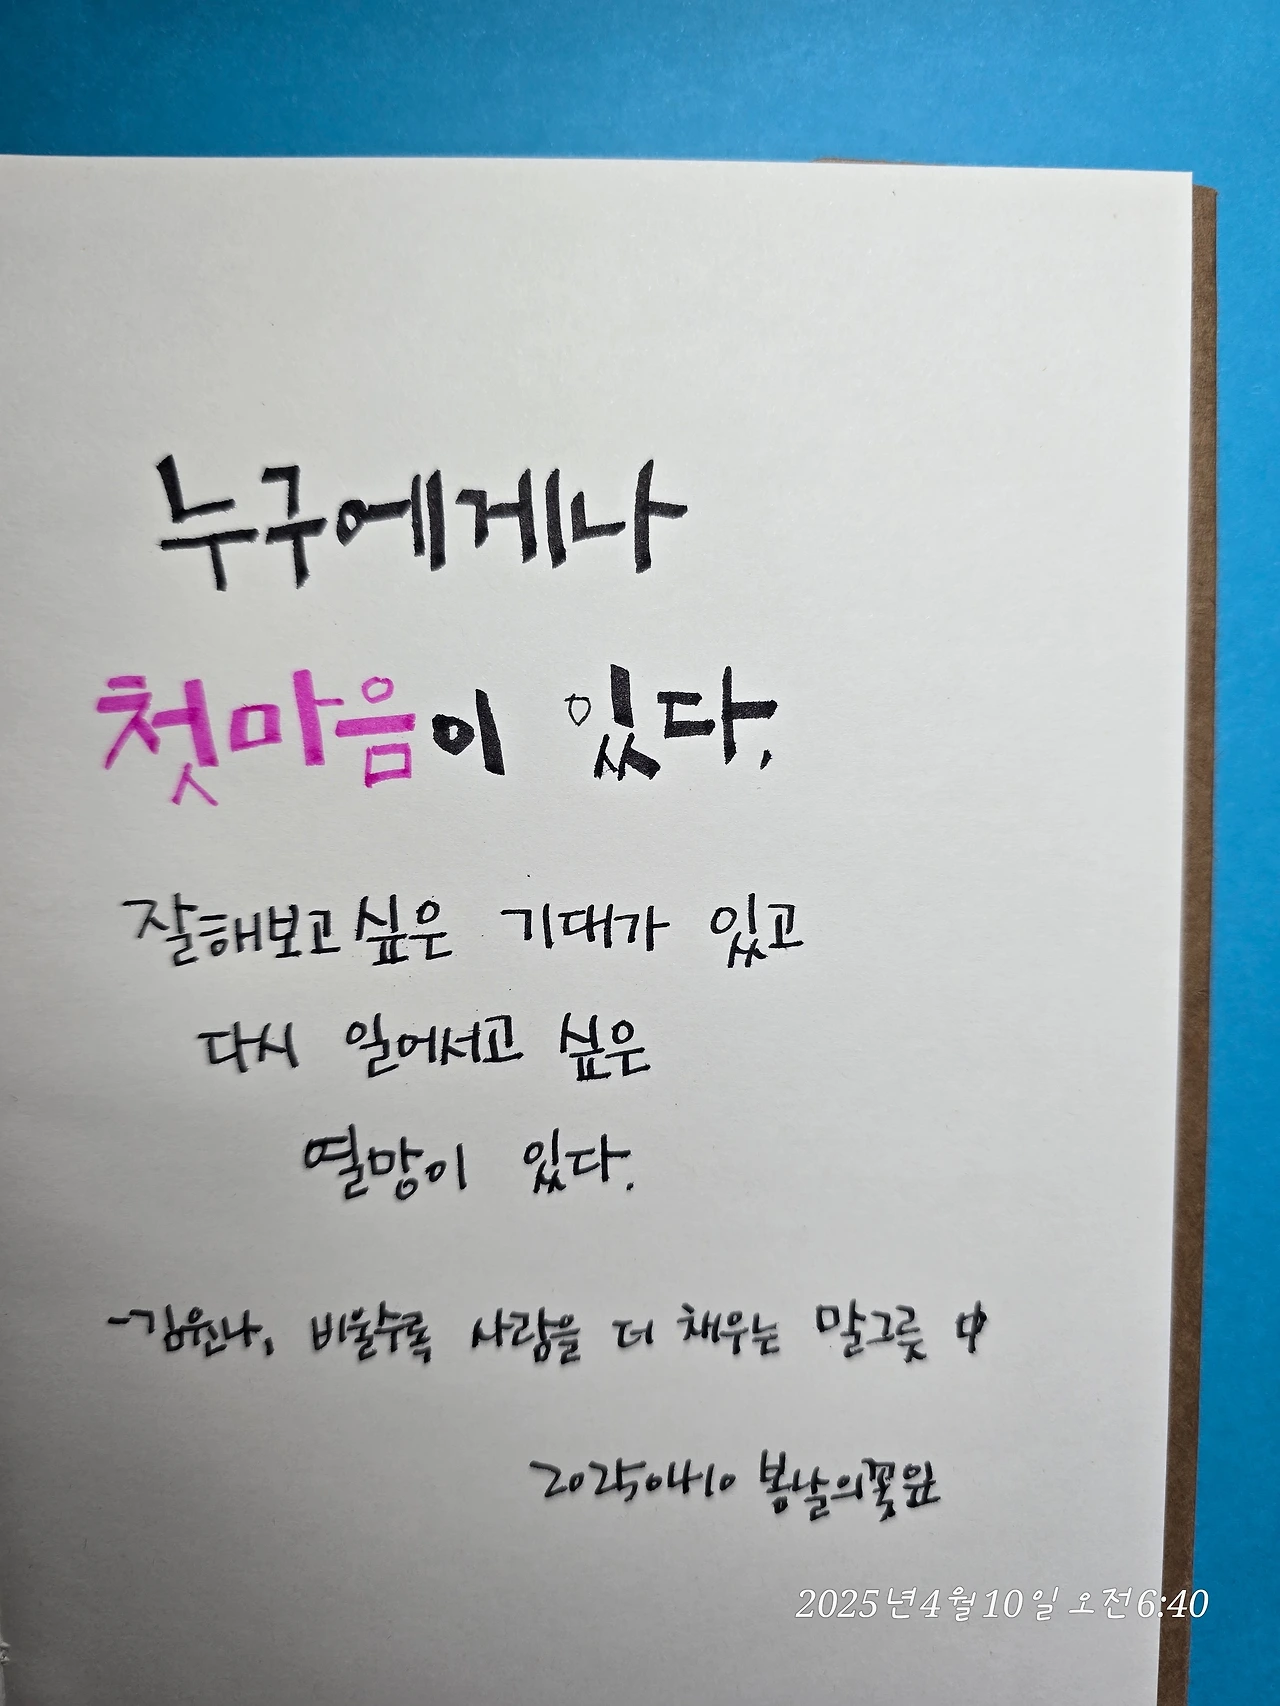 누구에게나
첫마음이 있다.
잘해보고싶은 기대가 있고
다시 일어서고 싶은
열망이 있다.
-김윤나, 비울수록 사람을 더 채우는 말그릇 中
20250410 봄날의꽃잎
2025년 4월 10일 오전 6:40